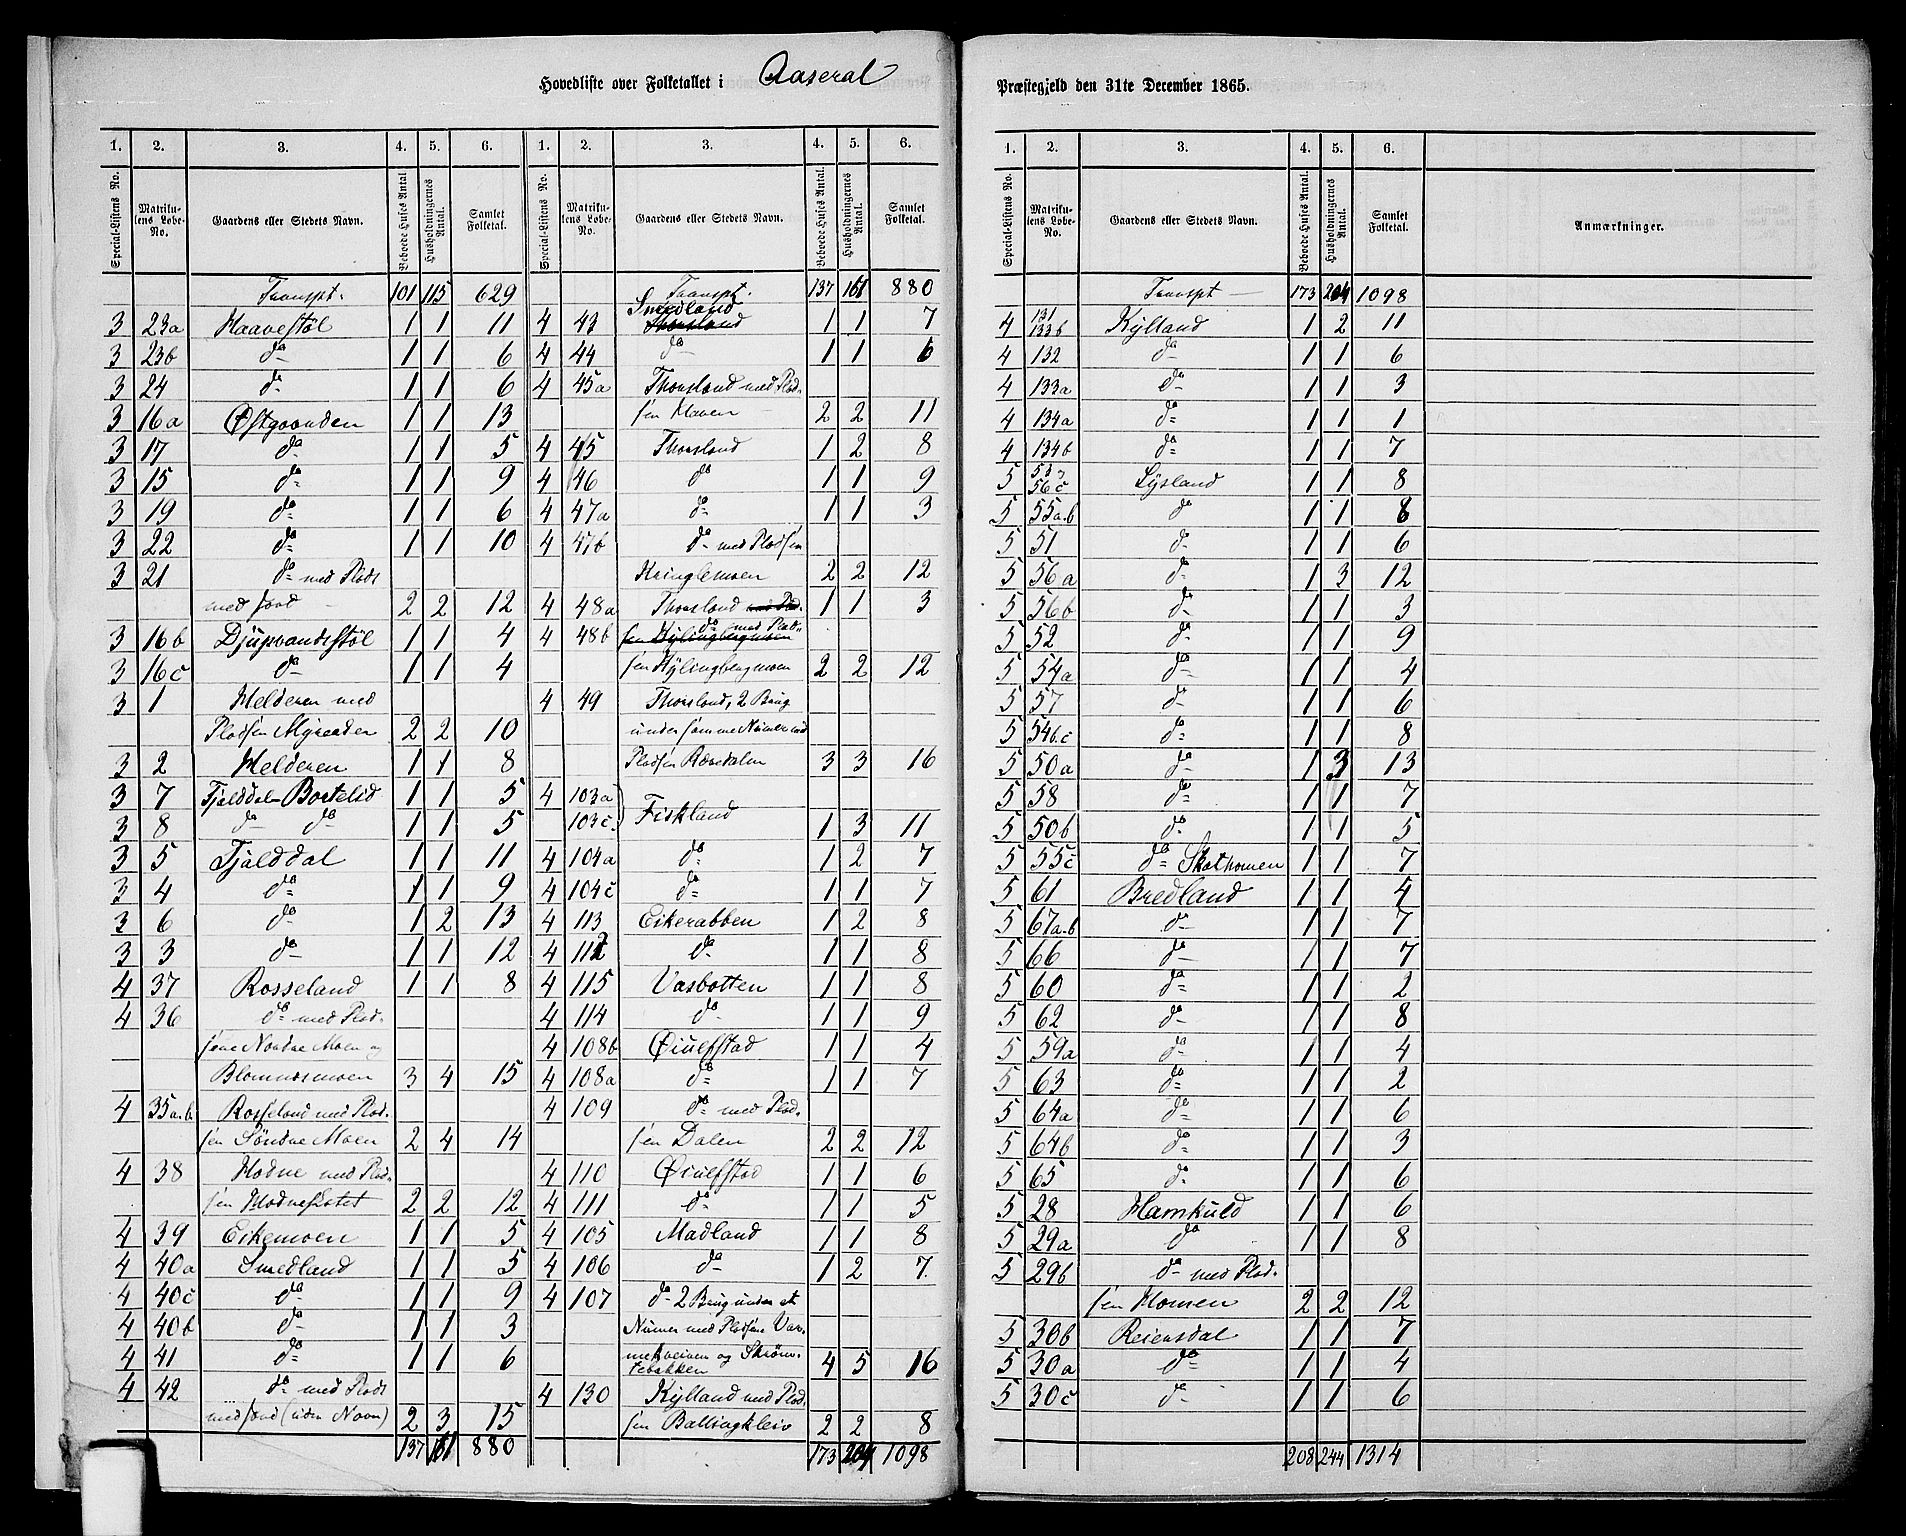 Hovedliste over Folketallet i Aaseral Præstegjeld den 31te December 1865.
1. 2. 3. 4. 5. 6. 1. 2. 3. 4. 5. 6.
Special-Listens No. Matrikulens Løbe-No. Gaardens eller Stedets Navn. Beboede Huses Antal Husholdningernes Antal. Samlet Folketal. Special-Listens No. Matrikulens Løbe-No. Gaardens eller Stedets Navn. Beboede Huses Antal. Husholdningernes Antal. Samlet Folketal.
Transpt. 101 115 629
3 23a Haavestøl 1 1 11
3 23b do 1 1 6
3 24 do 1 1 6
3 16a Østgaarden 1 1 13
3 17 do 1 1 5
3 15 do 1 1 9
3 19 do 1 1 6
3 22 do 1 1 10
3 21 do med Plads
med Jord 2 2 12
3 16b Djupvandsstøl 1 1 4
3 16c do 1 1 4
3 1 Helderen med
Pladsen Myreaden 2 2 10
3 2 Helderen 1 1 8
3 7 Fjelddal Bortelid 1 1 5
3 8 do do 1 1 5
3 5 Fjelddal 1 1 11
3 4 do 1 1 9
3 6 do 1 2 13
3 3 do 1 1 12
4 37 Rosseland 1 1 8
4 36 do med Plad-
sene Nordre Moen og
Blomnesmoen 3 4 15
4 35a.b Rosseland med Plad-
sen Søndre Moen 2 4 14
4 38 Hodne med Plad-
sen Hodneslotet 2 2 12
4 39 Eikemoen 1 1 5
4 40a Smedland 1 1 5
4 40c do 1 1 9
4 40b do 1 1 3
4 41 do 1 1 6
4 42 do med Plads
med Jord (uden Navn) 2 3 15
137 161 880
Transpt. 137 161 880
4 43 Smedland 1 1 7
4 44 do 1 1 6
4 45a Thorsland med Plad-
sen Haven 2 2 11
4 45 Thorsland 1 2 8
4 46 do 1 1 9
4 47a do 1 1 3
4 47b do med Pladsen
Kringlemoen 2 2 12
4 48a Thorsland 1 1 3
4 48b do med Plad-
sen Kylingbergmoen 2 2 12
4 49 Thorsland, 2 Brug
under samme Numer med
Pladsen Rævedalen 3 3 16
4 103a
103c Fiskland 1 3 11
4 104a do 1 2 7
4 104c do 1 1 7
4 113 Eikerabben 1 2 8
4 112 do 1 1 8
4 115 Vasbotten 1 1 8
4 114 do 1 1 9
4 108b Øiulfstad 1 1 4
4 108a do 1 1 7
4 109 do med Plad-
sen Dalen 2 2 12
4 110 Øiulfstad 1 1 6
4 111 do 1 1 5
4 105 Madland 1 1 8
4 106 do 1 2 7
4 107 do 2 Brug under et
Numer med Pladsene Var-
mekveiven og Skrøm-
tebakken 4 5 16
4 130 Kylland med Plad-
sen Ballingkleiv 2 2 8
173 204 1098
1. 2. 3. 4. 5. 6.
Special-Listens No. Matrikulens Løbe-No. Gaardens eller Stedets Navn. Beboede Huses Antal. Husholdningernes Antal. Samlet Folketal. Anmærkninger.
Transpt 173 204 1098
4 131 133b Kylland 1 2 11
4 132 do 1 1 6
4 133a do 1 1 3
4 134a do 1 1 1
4 134b do 1 1 7
5 53, 56c Lysland 1 1 8
5 55a.b do 1 1 8
5 51 do 1 1 6
5 56a do 1 3 12
5 56b do 1 1 3
5 52 do 1 1 9
5 54a do 1 1 4
5 57 do 1 1 6
5 54b.c do 1 1 8
5 50a do 1 3 13
5 58 do 1 1 7
5 50b do 1 1 5
5 55c do Skathomen 1 1 7
5 61 Bredland 1 1 4
5 67a.b do 1 1 7
5 66 do 1 1 7
5 60 do 1 1 2
5 62 do 1 1 8
5 59a do 1 1 4
5 63 do 1 1 2
5 64a do 1 1 6
5 64b do 1 1 3
5 65 do 1 1 6
5 28 Hamkuld 1 1 6
5 29a do 1 1 8
5 29b do med Plad-
sen Homen 2 2 12
5 30b Reiersdal 1 1 7
5 30a do 1 1 4
5 30c do 1 1 6
208 244 1314